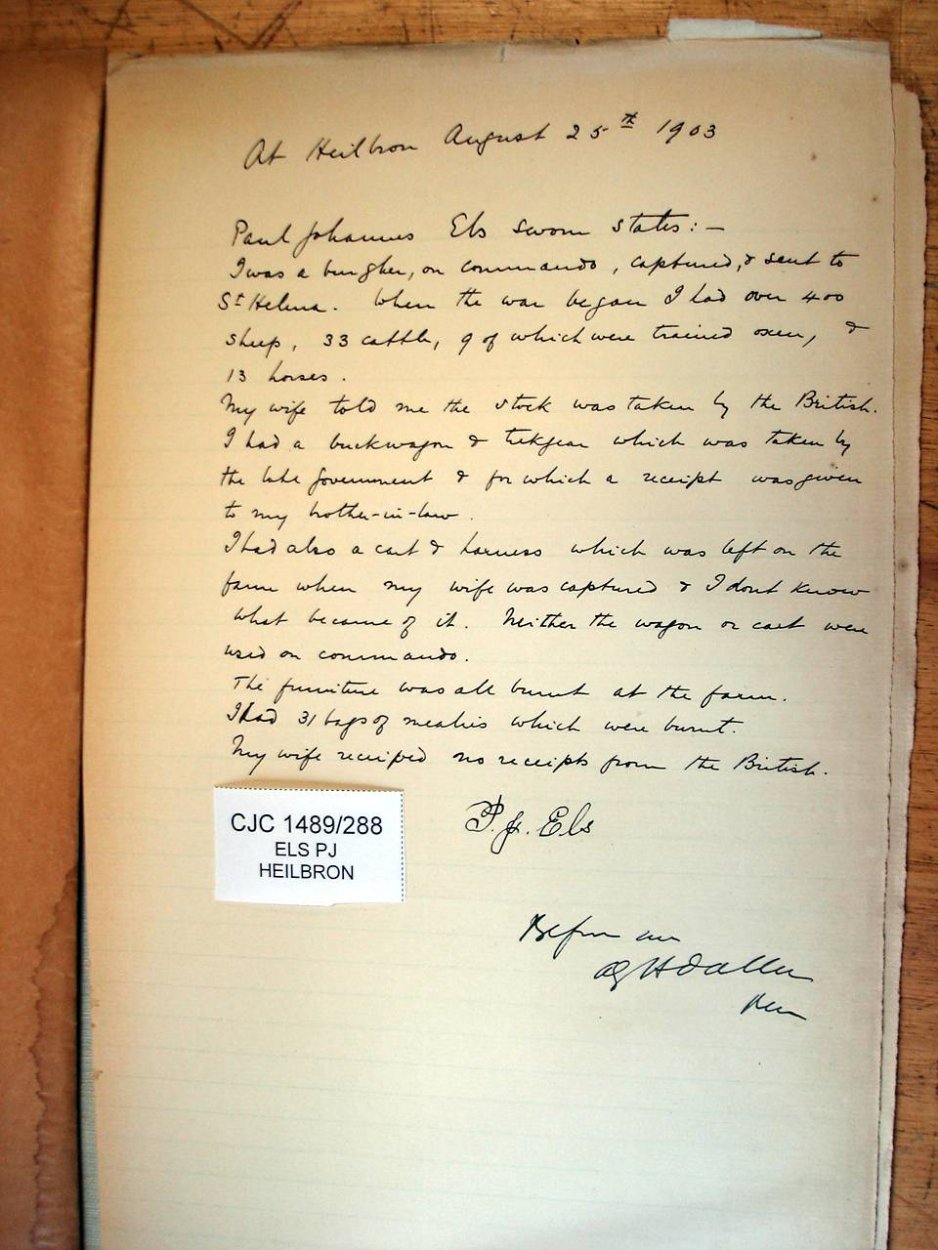 At Heilbron August 25th 1903
Paul Johannes Els sworn states:—
I was a burgher, on commando, captured, & sent to
St Helena. When the war began I had over 400
sheep, 33 cattle, 9 of which were trained oxen, &
13 horses.
My wife told me the stock was taken by the British.
I had a buckwagon & trekgear which was taken by
the late Government & for which a receipt was given
to my brother-in-law.
I had also a cart & harness which was left on the
farm when my wife was captured & I dont know
what became of it. Neither the wagon or cart were
used on commando.
The furniture was all burnt at the farm.
I had 31 bags of mealies which were burnt.
My wife received no receipts from the British.
P. J. Els
CJC 1489/288
ELS PJ
HEILBRON
Before me